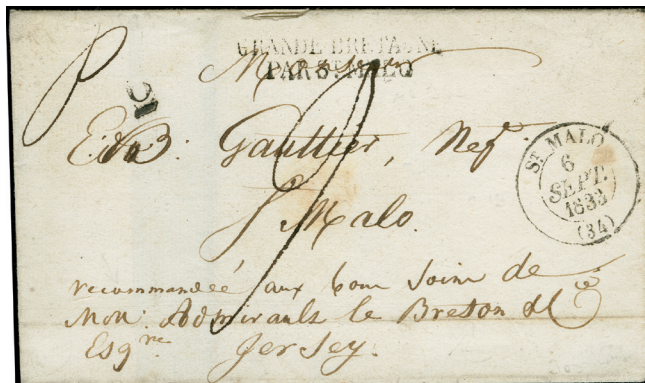 GRANDE BRETAGNE
PAR St. MALO
Edd: Gauttier, Nef
St Malo.
ST MALO
6
SEPT.
1833
(34)
recommandée aux bons soins de
Mon: Admirault le Breton & Ce
Esqre Jersey.